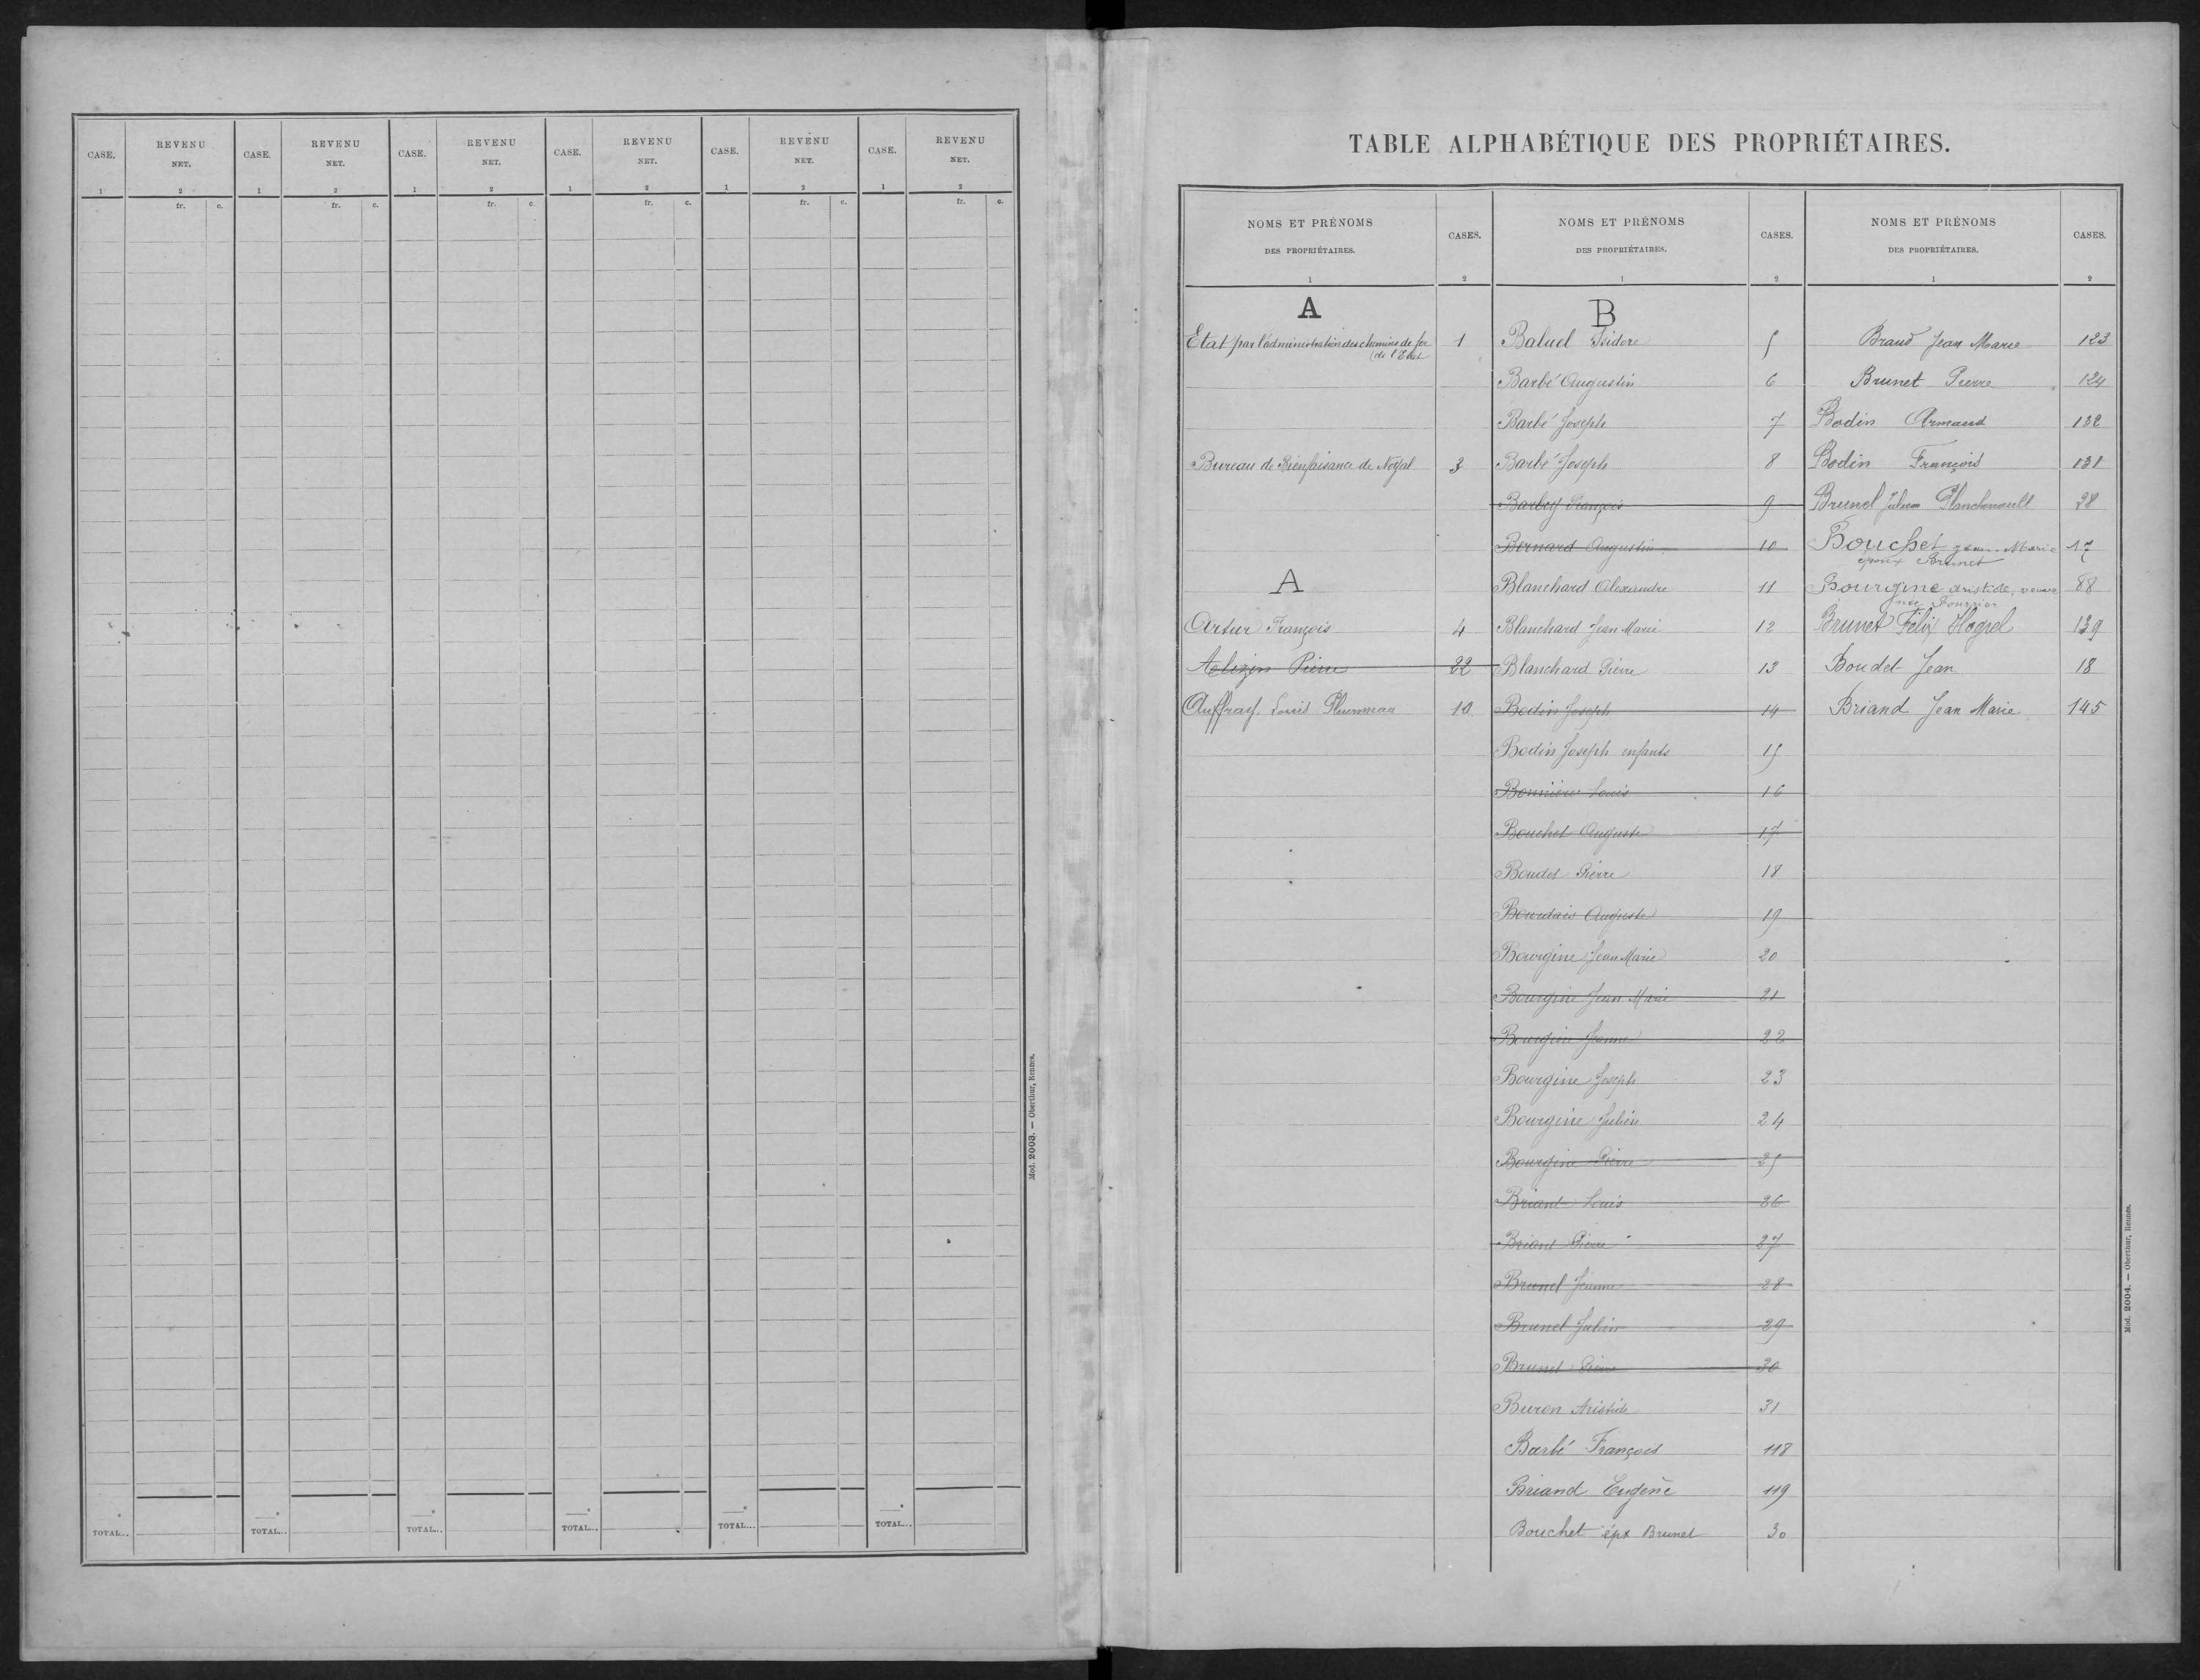 CASE. REVENU NET. CASE. REVENU NET. CASE. REVENU NET. CASE. REVENU NET. CASE. REVENU NET. CASE. REVENU NET.
1 2 1 2 1 2 1 2 1 2 1 2
fr. c. fr. c. fr. c. fr. c. fr. c. fr. c.
TOTAL... TOTAL... TOTAL... TOTAL... TOTAL... TOTAL...
Mod. 2003. — Oberthur, Rennes.
TABLE ALPHABÉTIQUE DES PROPRIÉTAIRES.
NOMS ET PRÉNOMS DES PROPRIÉTAIRES. CASES. NOMS ET PRÉNOMS DES PROPRIÉTAIRES. CASES. NOMS ET PRÉNOMS DES PROPRIÉTAIRES. CASES.
1 2 1 2 1 2
A
Etat par l'administration des chemins de fer 1
(de l'Etat
Bureau de Bienfaisance de Noyal 3
A
Artur François 4
Pierre 22
Auffray Louis 10
B
Baluel Isidore 5
Barbé Augustin 6
Barbé Joseph 7
Barbé Joseph 8
Barbé François 9
Bernard Augustin 10
Blanchard Alexandre 11
Blanchard Jean Marie 12
Blanchard Pierre 13
Bodin Joseph 14
Bodin Joseph enfants 15
Louis 16
Bouchet Auguste 17
Boudet Pierre 18
Bourdais Auguste 19
Bourgine Jean Marie 20
Bourgine Jean Marie 21
Bourgine Jeanne 22
Bourgine Joseph 23
Bourgine Julien 24
Bourgine Pierre 25
Briand Louis 26
Briand Pierre 27
Brunel Jeanne 28
Brunel Julien 29
Brunel Pierre 30
Buron Aristide 31
Barbé François 118
Briand Eugène 119
Bouchet épx Brunel 30
Braud Jean Marie 123
Brunet Pierre 124
Bodin Armand 132
Bodin François 131
Brunel Julien Planchenault 28
Bouchet Jean-Marie 17
époux Brunet
Bourgine aristide, veuve 88
née
Brunet Félix Hogrel 139
Boudet Jean 18
Briand Jean Marie 145
Mod. 2004. — Oberthur, Rennes.